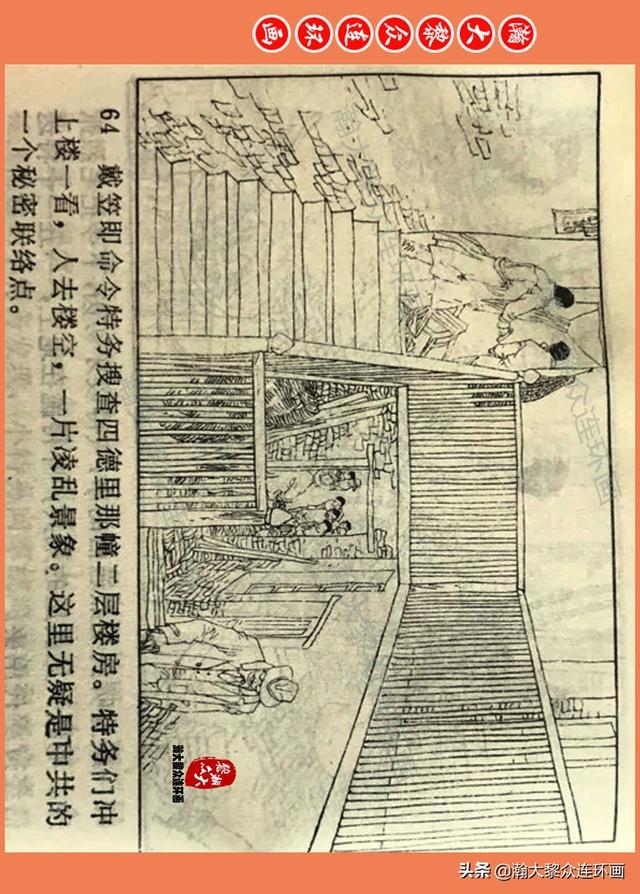 瀚大黎众连环画
64 戴笠即命令特务搜查四德里那幢二层楼房。特务们冲
上楼一看，人去楼空，一片凌乱景象。这里无疑是中共的
一个秘密联络点。
瀚大黎众
瀚大黎众连环画
头条 @瀚大黎众连环画